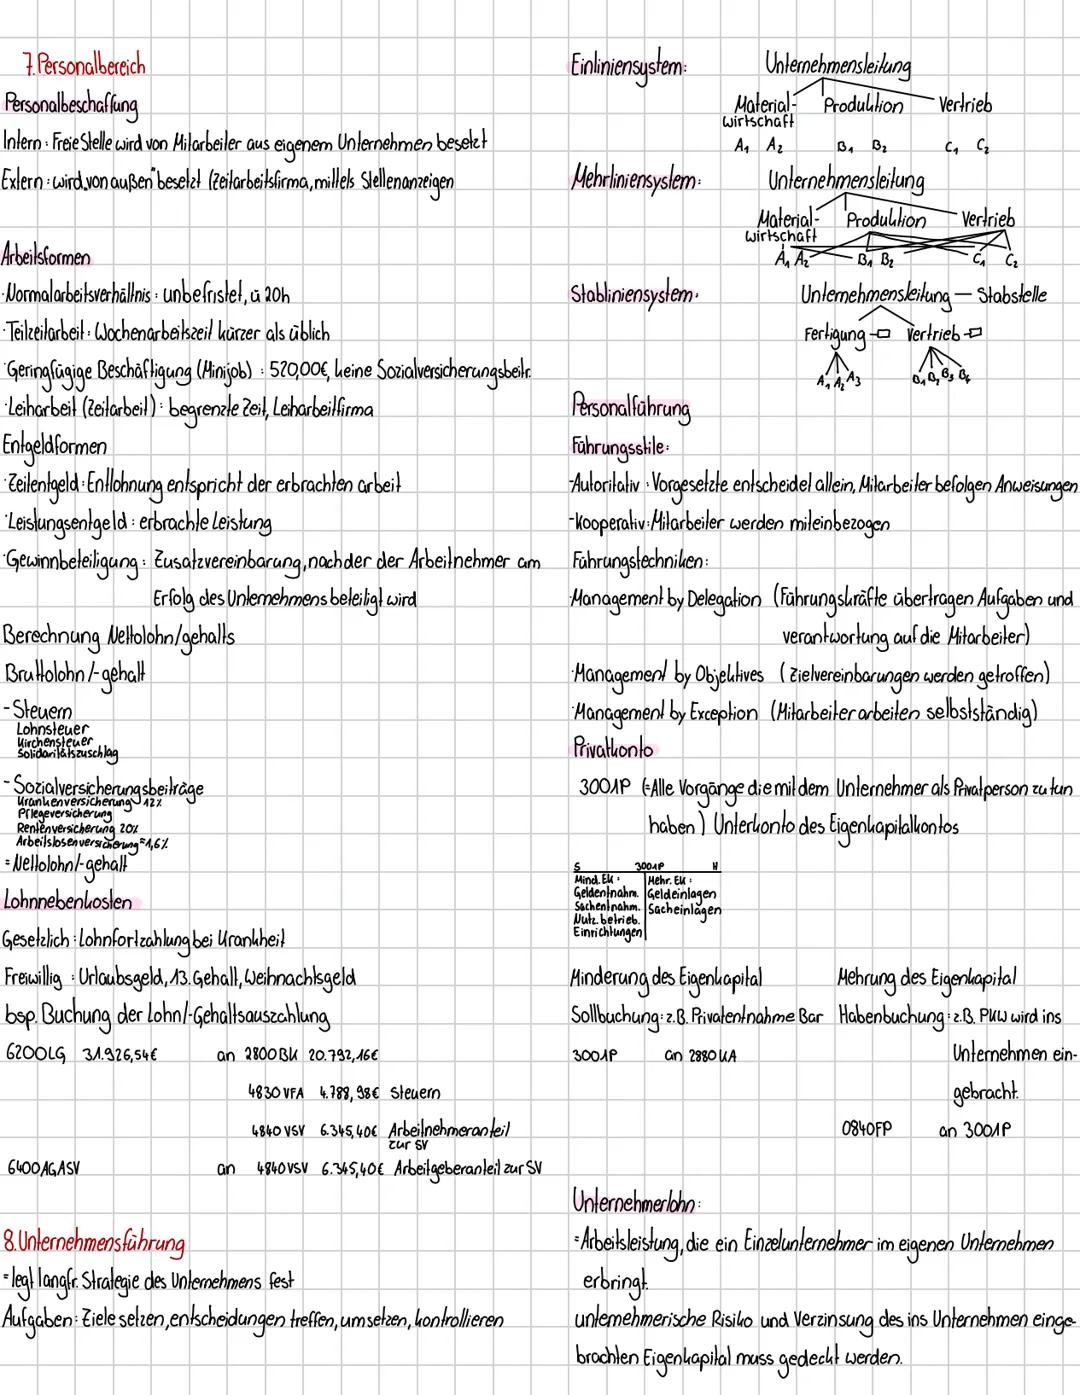 7. Personalbereich
Personalbeschaffung
Intern: Freie Stelle wird von Mitarbeiter aus eigenem Unternehmen besetzt
Extern: wird „von außen" besetzt (Zeitarbeitsfirma, mittels Stellenanzeigen
Arbeitsformen
·Normalarbeitsverhältnis: unbefristet, ü 20h
·Teilzeitarbeit: Wochenarbeitszeit kürzer als üblich
·Geringfügige Beschäftigung (Minijob): 520,00€, keine Sozialversicherungsbeitr.
·Leiharbeit (Zeitarbeit): begrenzte Zeit, Leiharbeitfirma
Entgeldformen
·Zeitentgeld: Entlohnung entspricht der erbrachten arbeit
·Leistungsentgeld: erbrachte Leistung
·Gewinnbeteiligung: Zusatzvereinbarung, nach der der Arbeitnehmer am
Erfolg des Unternehmens beteiligt wird
Berechnung Nettolohn/gehalts
Bruttolohn/-gehalt
- Steuern
Lohnsteuer
Kirchensteuer
Solidaritätszuschlag
- Sozialversicherungsbeiträge
Krankenversicherung 12%
Pflegeversicherung
Rentenversicherung 20%
Arbeitslosenversicherung =1,6%
= Nettolohn/-gehalt
Lohnnebenkosten
Gesetzlich: Lohnfortzahlung bei Krankheit
Freiwillig: Urlaubsgeld, 13. Gehalt, Weihnachtsgeld
bsp. Buchung der Lohn/-Gehaltsauszahlung
6200LG 31.926,54€ an 2800BK 20.792,16€
4830 VFA 4.788,98€ Steuern
4840 VSV 6.345,40€ Arbeitnehmeranteil
zur SV
6400AGASV an 4840VSV 6.345,40€ Arbeitgeberanteil zur SV
8. Unternehmensführung
= legt langfr. Strategie des Unternehmens fest
Aufgaben: Ziele setzen, entscheidungen treffen, umsetzen, kontrollieren
Einliniensystem: Unternehmensleitung
Material- Produktion Vertrieb
wirtschaft
A1 A2 B1 B2 C1 C2
Mehrliniensystem: Unternehmensleitung
Material- Produktion Vertrieb
wirtschaft
A1 A2 B1 B2 C1 C2
Stabliniensystem: Unternehmensleitung — Stabstelle
Fertigung Vertrieb
A1 A2 A3 B1 B2 B3 B4
Personalführung
Führungsstile:
-Autoritativ: Vorgesetzte entscheidet allein, Mitarbeiter befolgen Anweisungen
-Kooperativ: Mitarbeiter werden miteinbezogen
Führungstechniken:
·Management by Delegation (Führungskräfte übertragen Aufgaben und
verantwortung auf die Mitarbeiter)
·Management by Objektives (Zielvereinbarungen werden getroffen)
·Management by Exception (Mitarbeiter arbeiten selbstständig)
Privatkonto
3001P (=Alle Vorgänge die mit dem Unternehmer als Privatperson zu tun
haben) Unterkonto des Eigenkapitalkontos
S 3001P H
Mind. EK: Mehr. EK:
Geldentnahm. Geldeinlagen
Sachentnahm. Sacheinlagen
Nutz. betrieb.
Einrichtungen
Minderung des Eigenkapital Mehrung des Eigenkapital
Sollbuchung: z.B. Privatentnahme Bar Habenbuchung: z.B. PKW wird ins
3001P an 2880KA Unternehmen ein-
gebracht.
0840FP an 3001P
Unternehmerlohn:
=Arbeitsleistung, die ein Einzelunternehmer im eigenen Unternehmen
erbringt.
unternehmerische Risiko und Verzinsung des ins Unternehmen einge-
brachten Eigenkapital muss gedeckt werden.